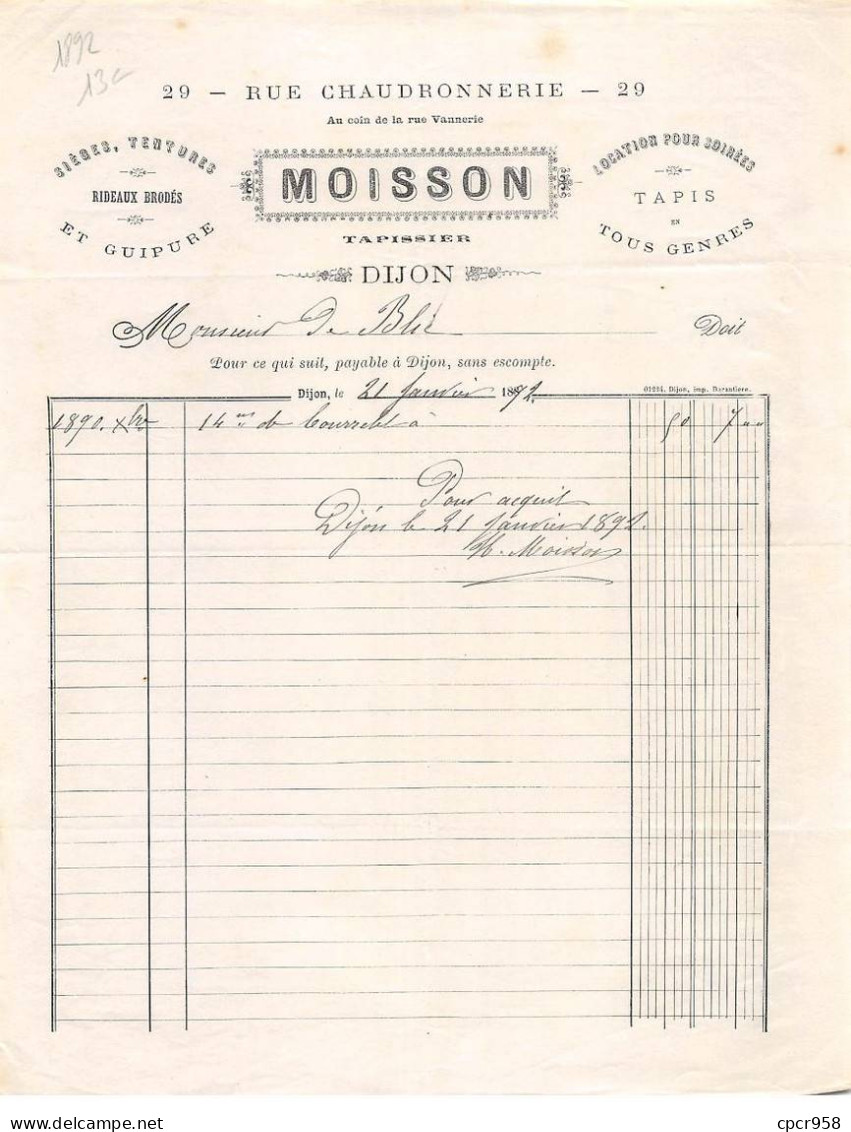 1892
13c
29 — RUE CHAUDRONNERIE — 29
Au coin de la rue Vannerie
SIÈGES, TENTURES
RIDEAUX BRODÉS
ET GUIPURE
MOISSON
TAPISSIER
DIJON
LOCATION POUR SOIRÉES
TAPIS
EN
TOUS GENRES
Monsieur de Blic Doit
Pour ce qui suit, payable à Dijon, sans escompte.
Dijon, le 21 Janvier 1892
Dijon, imp. Darantiere.
1890. Xbre 14 m de à 50 7 00
Pour acquit
Dijon le 21 Janvier 1892.
Moisson
cpcr958